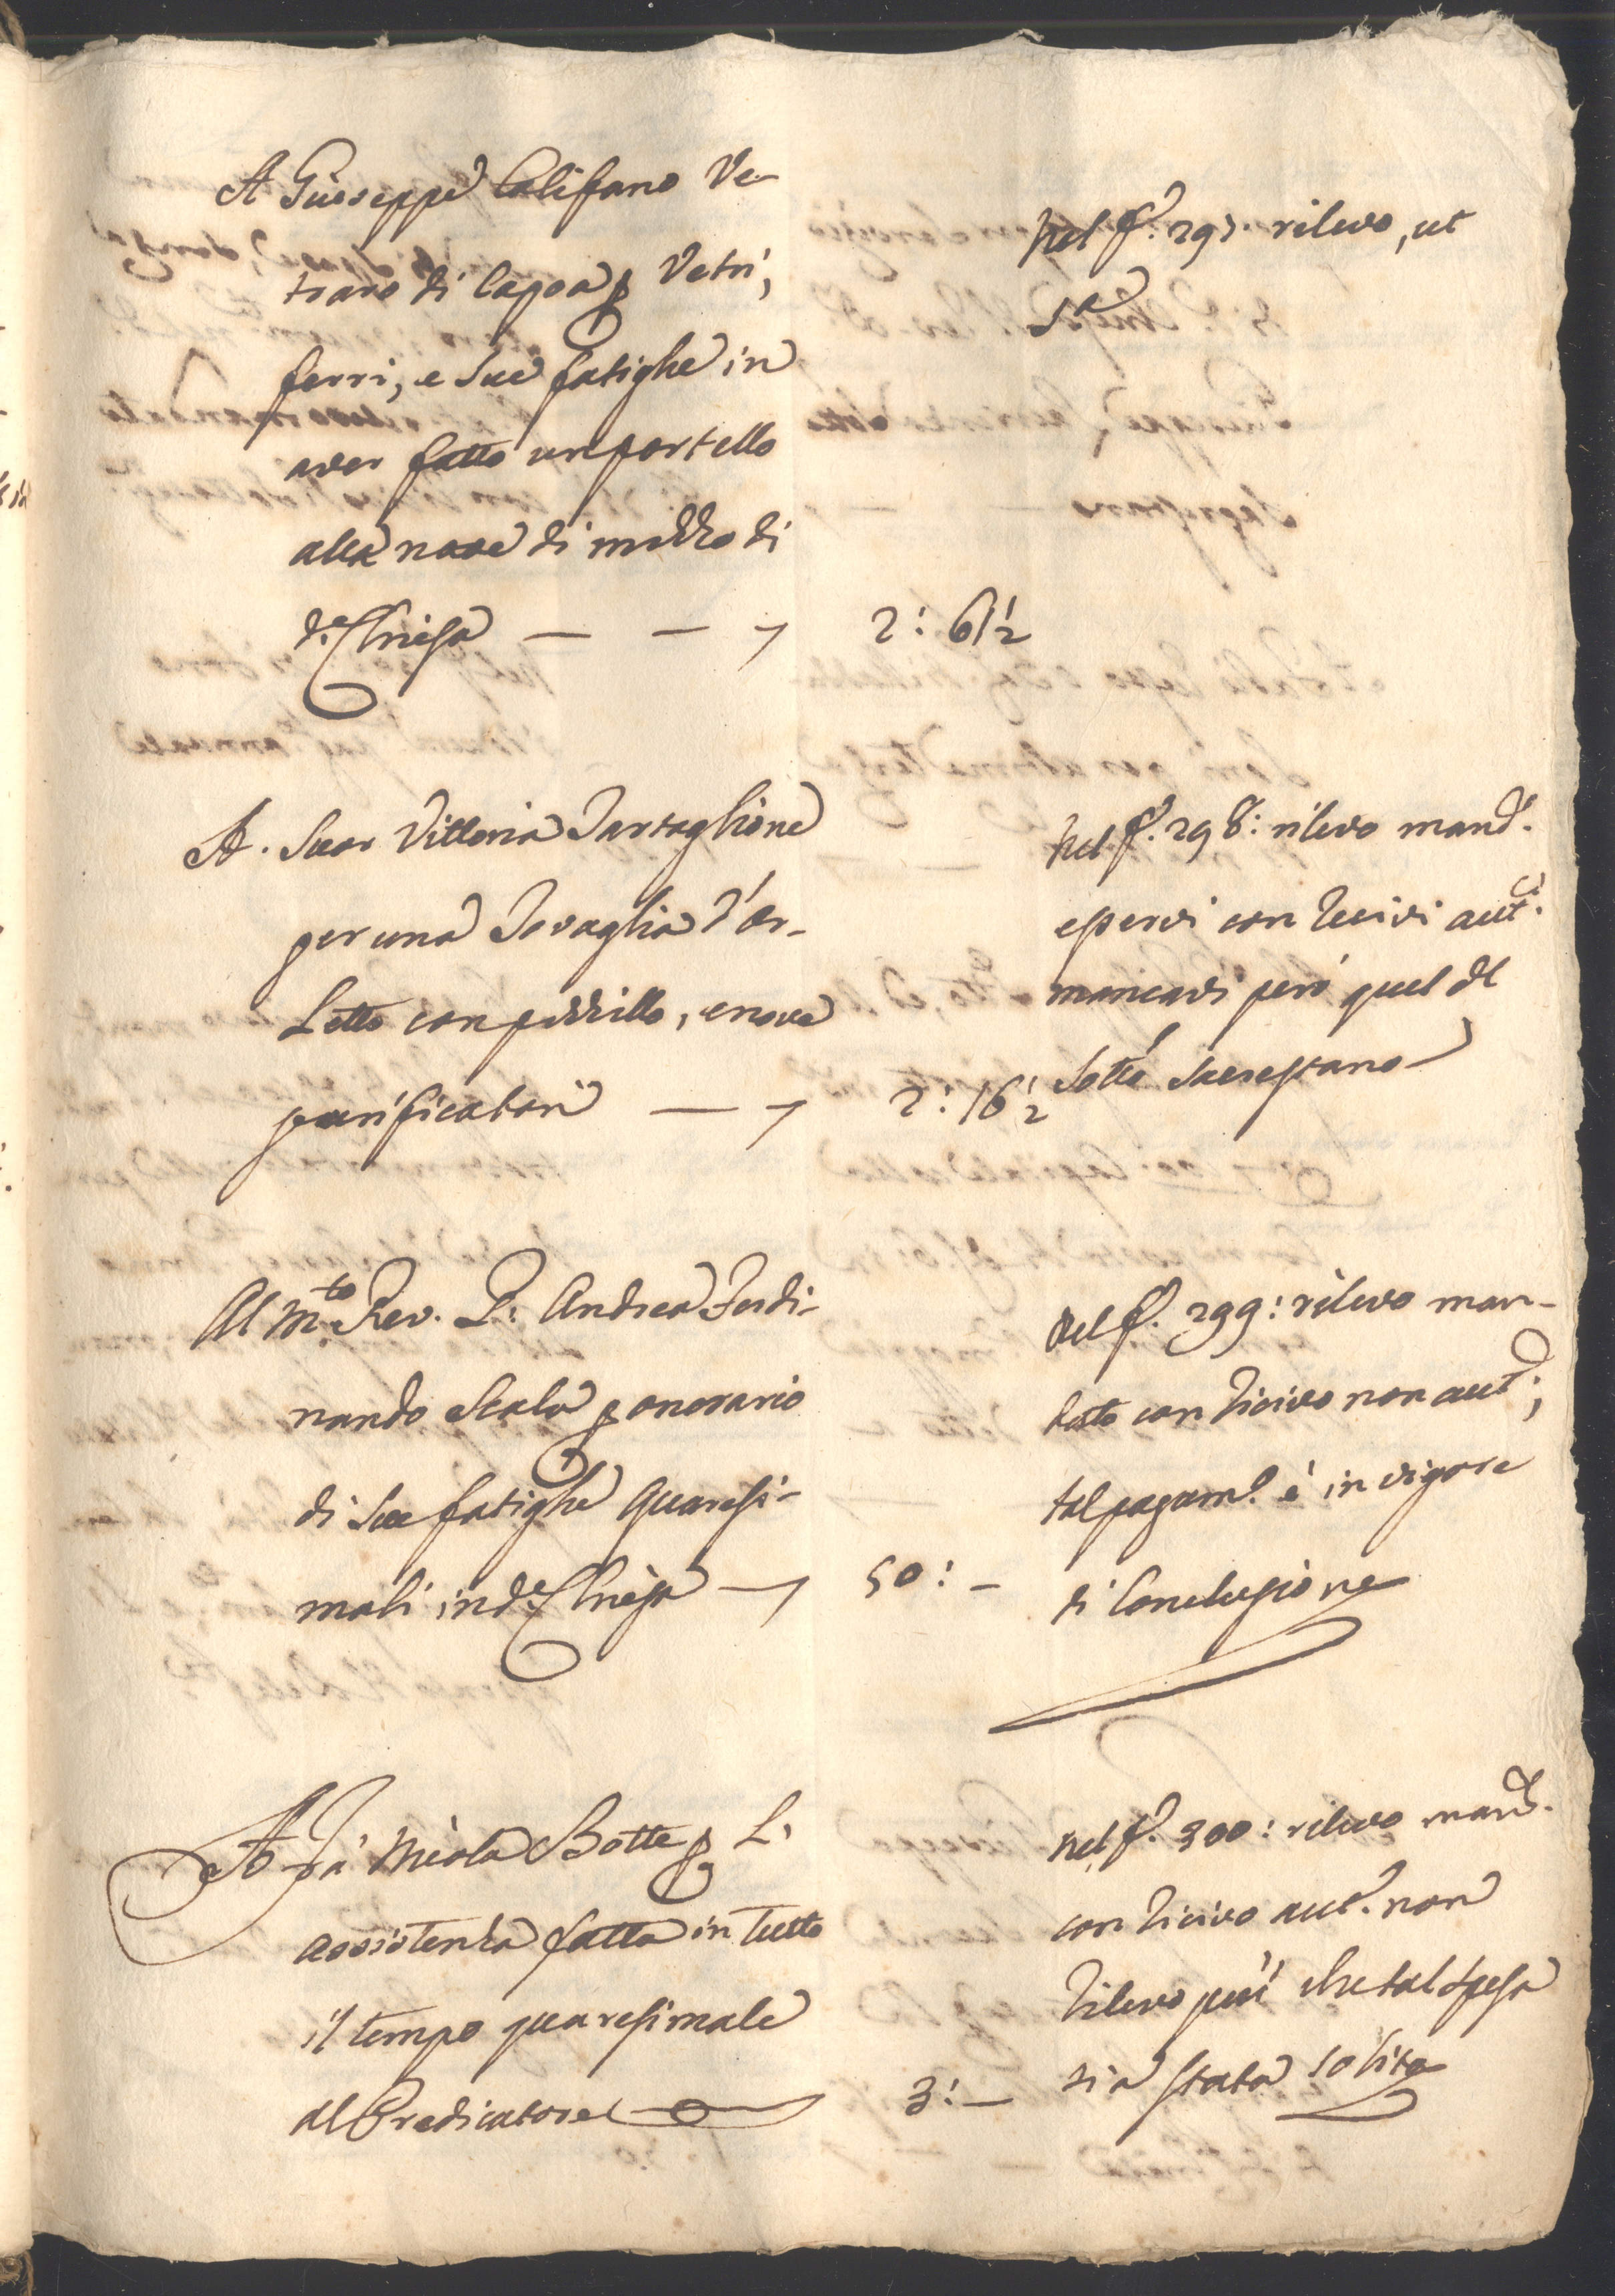 A Giuseppe Califano Ve-
traro di Capoa p Vetri,
ferri, e sue fatighe in
aver fatto un portello
alla nave di mezzo di
d.a Chiesa — — 2: 61/2
Nel f.o 297: rilevo, ut
s.a
A Suor Vittoria Tartaglione
per una Tovaglia d'or-
letto con pizzillo, e nove
purificatori — 2: 16 1/2
Nel f.o 298: rilevo mand.
espervi con ricivi aut.
mancavi però quel del
sotto Sacrestano
Al M.to Rev. P. Andrea Ferdi-
nando Scala p onorario
di sue fatighe quaresi-
mali in d.a Chiesa — 50: —
Nel f.o 299: rilevo man-
dato con ricivo non aut.;
tal pagam.o è in vigore
di Conclusione
A Frà Nicola Botte p l'
assistenza fatta in tutto
il tempo quaresimale
al Predicatore — 3: —
Nel f.o 300: rilevo mand.
con ricivo aut. non
rilevo però che tal spesa
sia stata solita